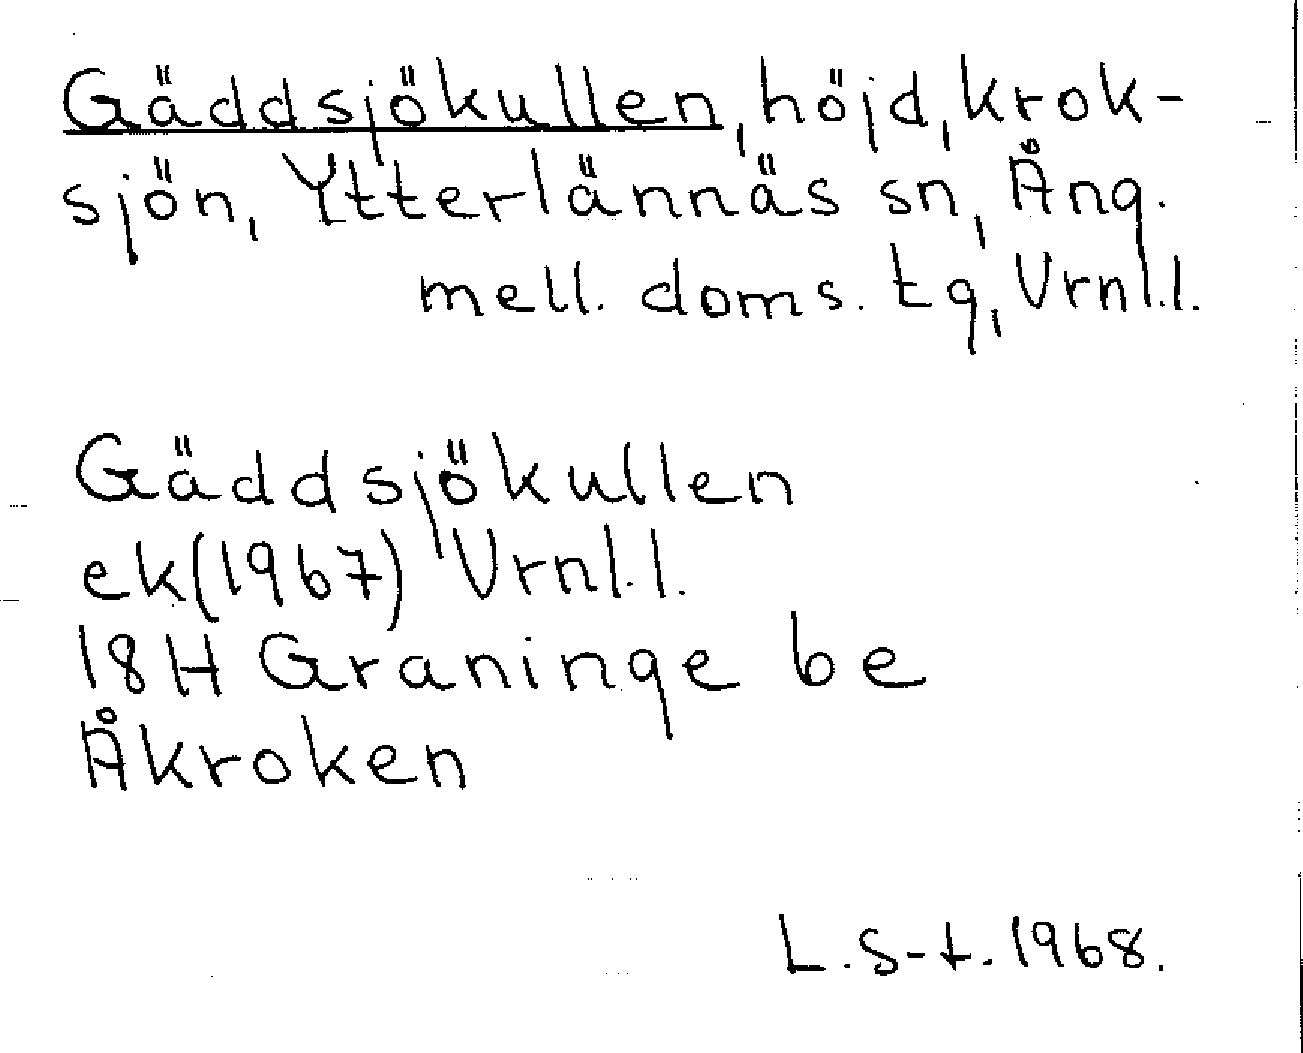 Gäddsjökullen, höjd, krok-
sjön, Ytterlännäs sn, Ång.
mell. doms. tg, Vrnl.l.
Gäddsjökullen
ek(1967) Vrnl.l.
18H Graninge be
Åkroken
L.S-t. 1968.